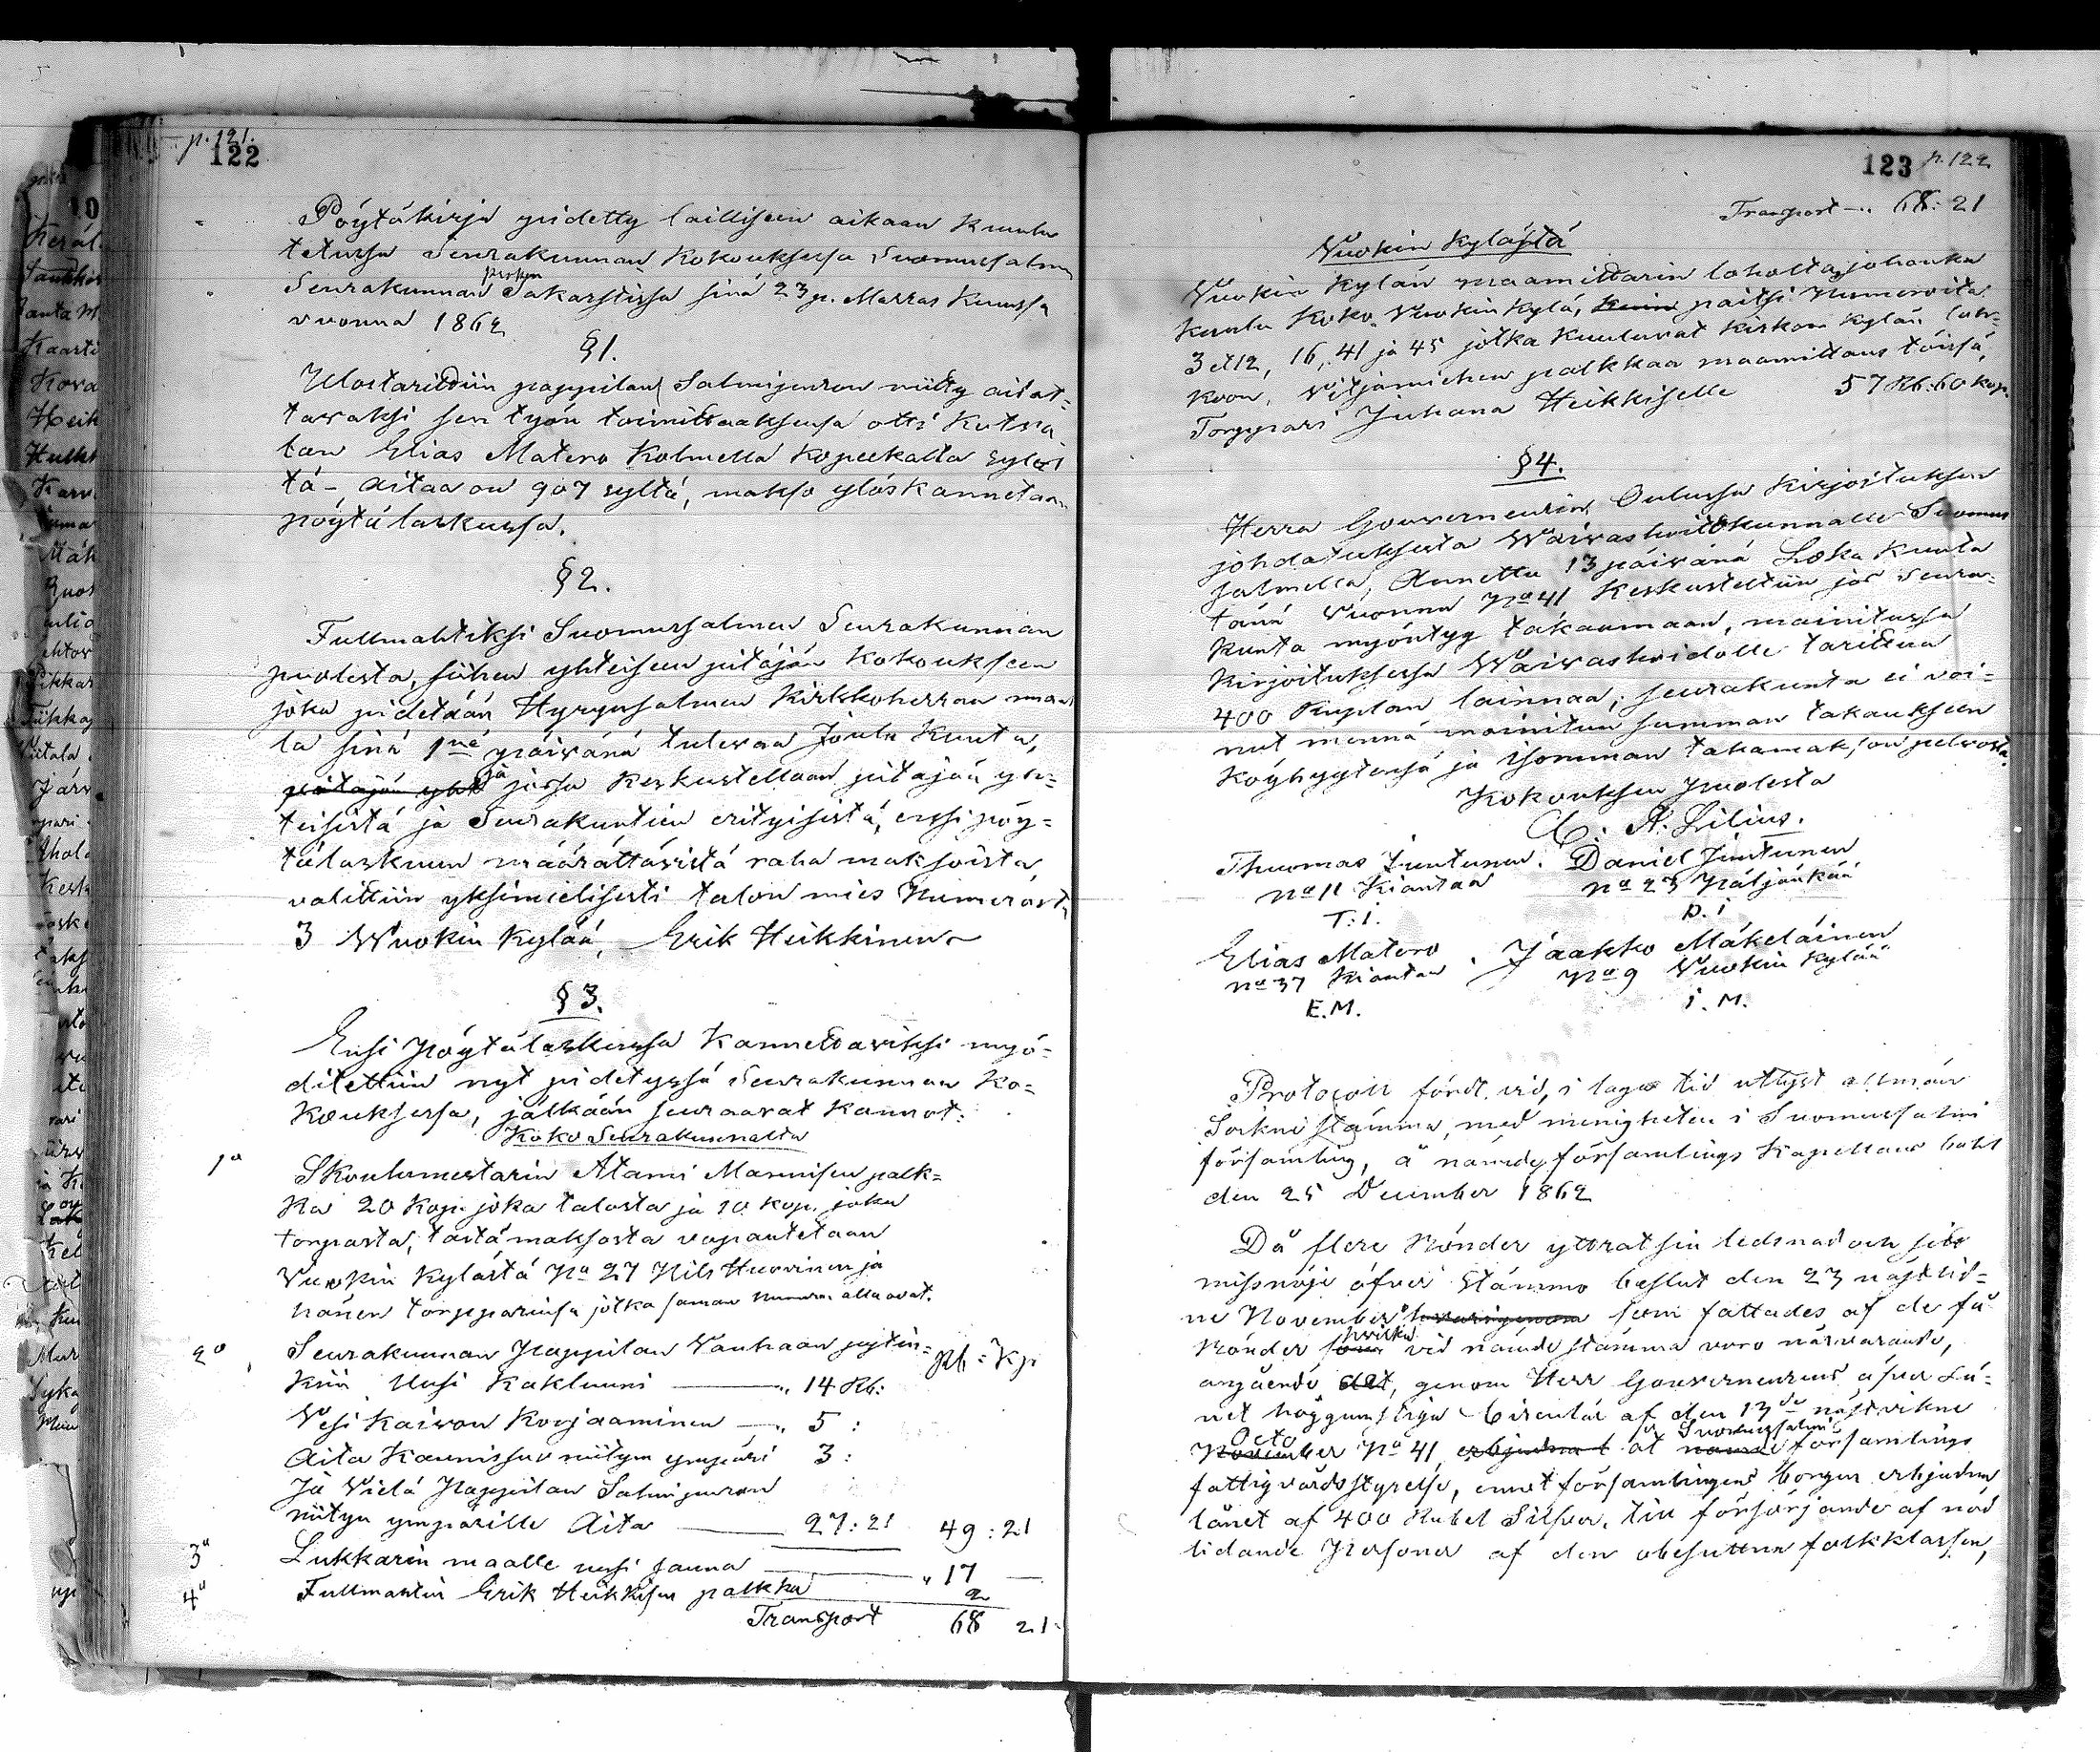 p. 121.
122
Pöytäkirja pidetty lailliseen aikaan kuulu
tetussa Seurakunnan Kokouksessa Suomussalmen
Seurakunnan Sakarstissa sinä 23 p. Marras Kuussa
vuonna 1862
§1.
Ulostarittiin pappilan Salmijenron niitty aitat-
tawaksi sen työn toimittaaksensa otti
Elias Matero Kolmella Kopeekalla syl
tä - Aitaa on 907 syltä, makso ylöskannetaan
pöytälaskussa.
§2.
Fullmahtiksi Suomussalmen Seurakunnan
puolesta, siihen yhteiseen pitäjän Kokoukseen
joka pidetään Hyrynsalmen Kirkkoherran
la sinä 1nä päiwänä tulewaa Joulu Kuuta,
pitäjän yht ja jossa Keskustellaan pitäjän yh-
teisistä ja Seurakuntien erityisistä, ensi pöy-
tälaskuun määrättäwistä raha maksoista,
valittiin yksimielisesti talon mies Numerosta
3 Wuokin Kylää, Erik Heikkinen
§3.
Ensi Pöytälaskussa Kannettawiksi myö-
ditettiin nyt pidetyssä Seurakunnan Ko-
kouksessa, jälkään seuraavat Kannot:
Koko Seurakunnalta
1o Skoulumestarin Atami Mannisen palk-
ka 20 Kop. joka talosta ja 10 kop. joka
torpasta, tästä maksosta vapautetaan
Vuokin Kylästä No 27 Nils Huovinen ja
hänen torpparinsa jotka saman numeron alla ovat.
2o Seurakunnan Pappilan Vanhaan pytin-
Rb = Kp
kiin Uusi Kakluuni — „ 14 Rb:
Vesi Kaiwon Korjaaminen — „ 5 :
Aita Kaunissuo niityn ympäri 3 :
Ja Vielä Pappilan Salmijenron
niityn ympärille Aita — 27 : 21 49 : 21
3o Lukkarin maalle uusi sauna — „ 17 —
4o Fullmahtin Erik Heikkisen palkka 2
Transport 68 21
123 p. 122
Transport — „ 68: 21
Vuokin Kylästä
Vuokin Kylän maamittarin loholta, johonka
kuulu Koko Vuokin Kylä, paitsi Numeroita
3 et 12, 16, 41 ja 45 jotka Kuuluvat Kiskon Kylän luk-
koon, Vitjamiehen palkkaa maamittaus töissä,
Torppari Juhana Heikkiselle 57 Rb: 60 kop.
§4.
Herra Gouverneurin Oulussa Kirjoituksen
johdatuksesta Waiwashoitokunnalle Suomus
salmella, Annettu 13 päiwänä Loka Kuuta
tänä Vuonna No 41 Keskusteltiin jos Seura-
kunta myöntyy takaamaan, mainitussa
kirjoituksessa Waiwashoidolle tarittua
400 Ruplan lainnaa; seurakunta ei voi-
nut mennä mainitun summan takaukseen
Köyhyytensä ja isomman takamaksun pelwosta.
Kokouksen Puolesta
C. A. Lilius.
Thuomas Juntunen. Daniel Juntunen
No 11 Kiantaa No 23 Pätjänkää
T: i. D. i
Elias Matero. Jaakko Mäkeläinen
No 37 Kiantaa No 9 Vuokin Kylää
E. M. i. M.
Protocoll fördt vid, i laga tid utlyst allmän
Sockne stämma, med menigheten i Suomussalmi
församling, å nämde församlings Kapellans bohl
den 25 December 1862
Då flere Bönder yttrat sin ledsnad och sitt
missnöje öfver Stämmo beslut den 23 nästlid-
ne November som fattades af de få
Bönder som hvilka vid nämde stämma voro närvarande,
angående det, genom Herr Gouverneurens öfver Lä-
net höggunstiga Circulär af den 13de nästvikne
November Octo No 41, erbjudna t åt nämde Suomussalmi församlings
fattigvårdsstyrelse, emot församlingens borgen erbjudna
lånet af 400 Rubel Silfver, till försörjande af nöd
lidande Personer af den obesuttna folkklassen,